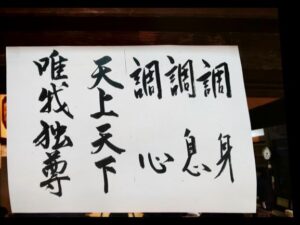 調身
調息
調心
天上天下
唯我独尊